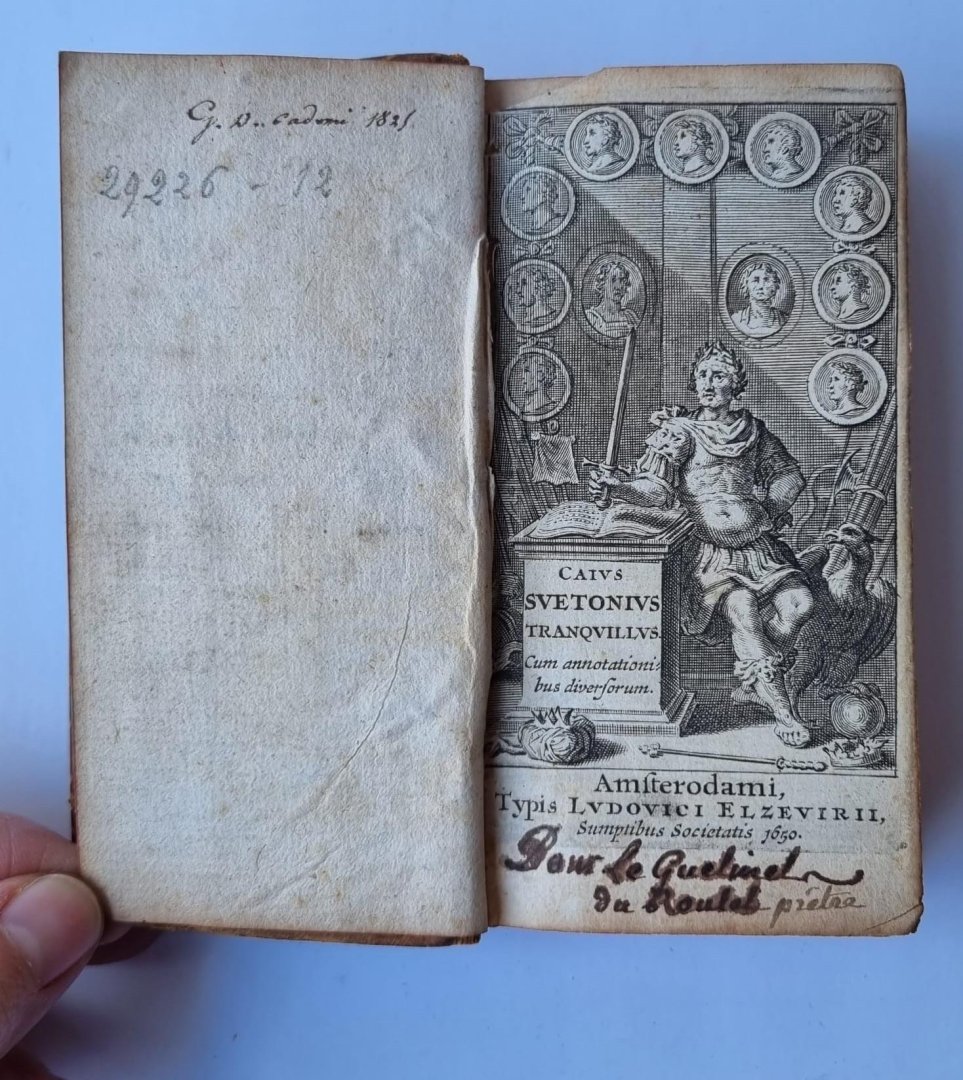 G. D. Cadomi 1825
29226 - 12
CAIVS
SVETONIVS
TRANQVILLVS.
Cum annotationi-
bus diversorum.
Amsterodami,
Typis LVDOVICI ELZEVIRII,
Sumptibus Societatis 1650.
Pour Le Guelinel
du Roulet prêtre